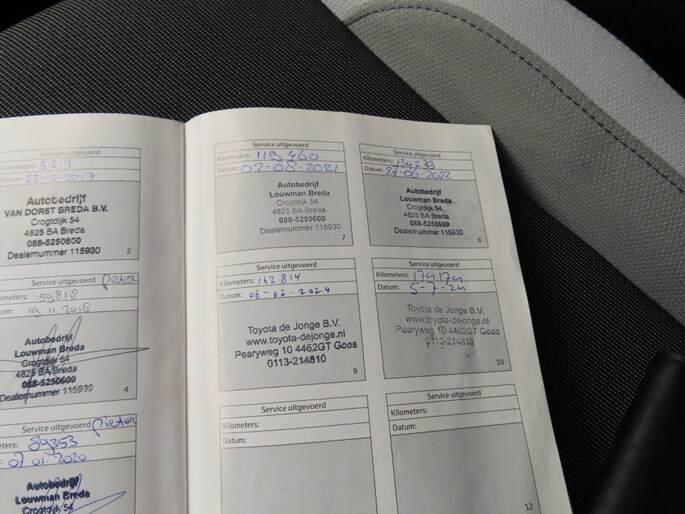 Kilometers: 31219
Datum: 23-10-2017
Autobedrijf
VAN DORST BREDA B.V.
Crogtdijk 54
4825 BA Breda
088-5250600
Dealernummer 115930
2
Service uitgevoerd Pieter
ometers: 59818
um: 19 11 2018
Autobedrijf
Louwman Breda
Crogtdijk 54
4825 BA Breda
088-5250600
Dealernummer 115930
4
Service uitgevoerd Pieter
eters: 89353
07 01 2020
Autobedrijf
Louwman Breda
Crogtdijk 54
Service uitgevoerd
Kilometers: 119 460
Datum: 02-08-2021
Autobedrijf
Louwman Breda
Crogtdijk 54
4825 BA Breda
088-5250600
Dealernummer 115930
7
Service uitgevoerd
Kilometers: 134238
Datum: 27-06-2022
Autobedrijf
Louwman Breda
Crogtdijk 54
4825 BA Breda
088-5250600
Dealernummer 115930
8
Service uitgevoerd
Kilometers: 162814
Datum: 06-02-2024
Toyota de Jonge B.V.
www.toyota-dejonge.nl
Pearyweg 10 4462GT Goes
0113-214810
9
Service uitgevoerd
Kilometers: 174174
Datum: 5-7-24
Toyota de Jonge B.V.
www.toyota-dejonge.nl
Pearyweg 10 4462GT Goes
0113-214810
10
Service uitgevoerd
Kilometers:
Datum:
Service uitgevoerd
Kilometers:
Datum:
12